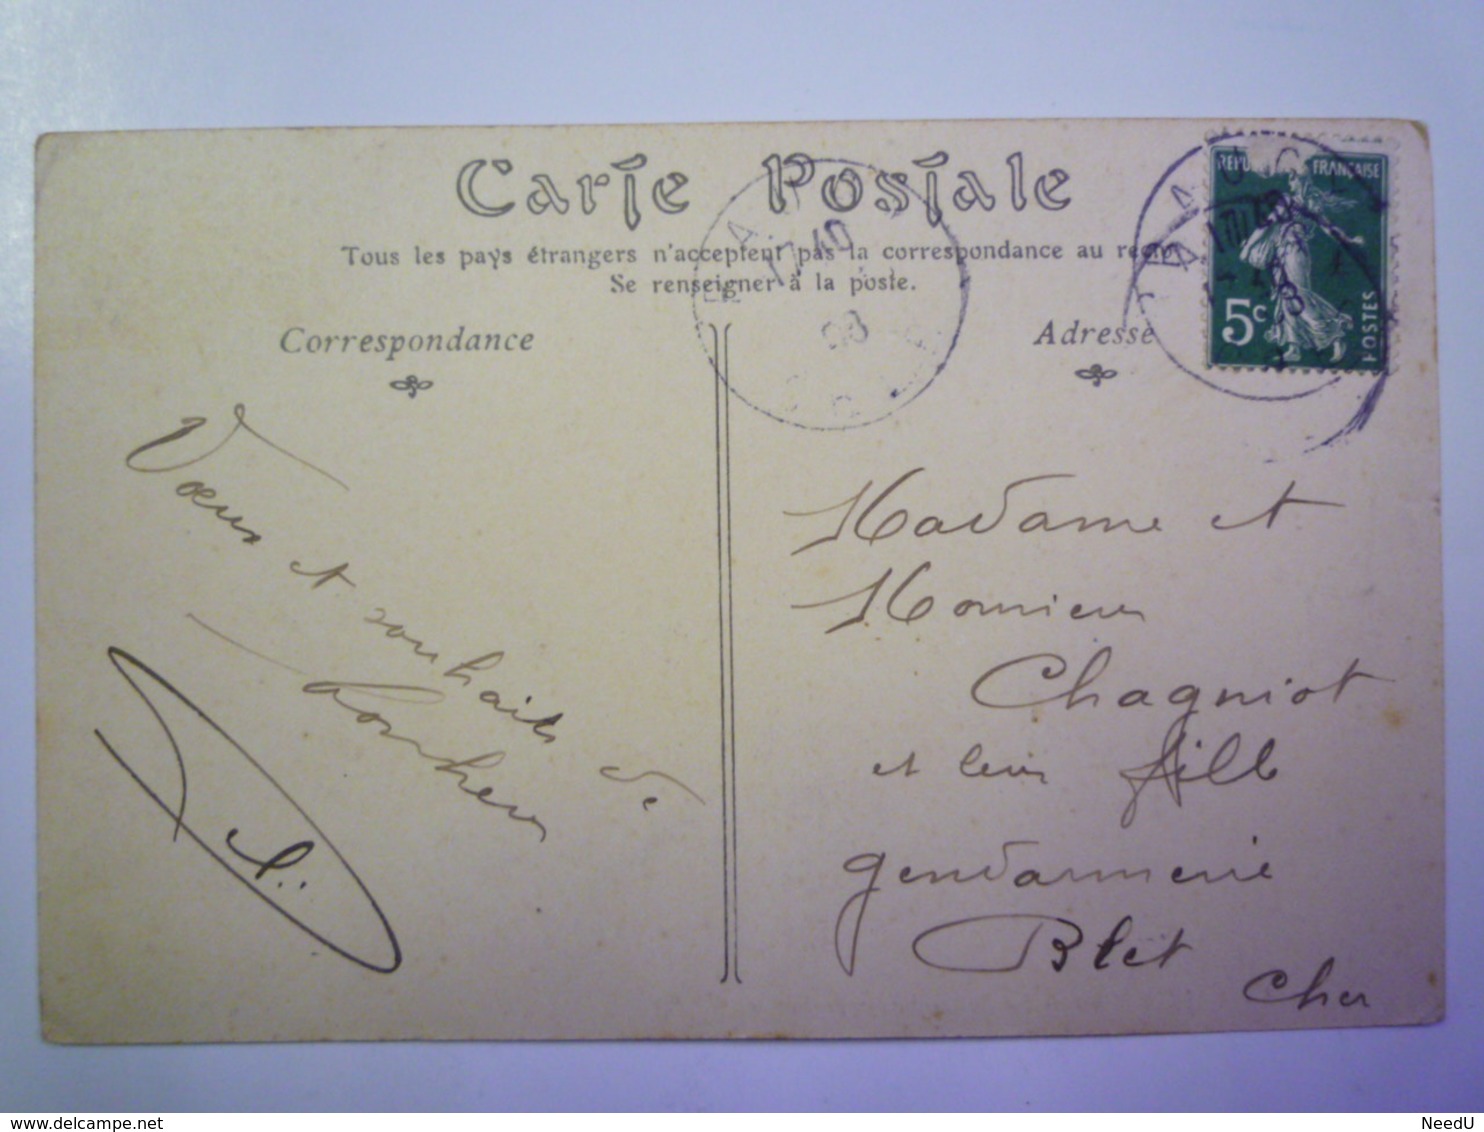 Carte Postale
Tous les pays étrangers n'acceptent pas la correspondance au recto
Se renseigner à la poste.
Correspondance
Vœux et souhaits de
bonheur
Adresse
RÉPUBLIQUE FRANÇAISE
5c
POSTES
Madame et
Monsieur
Chagniot
et leur fille
gendarmerie
Blet
Cher
NeedU